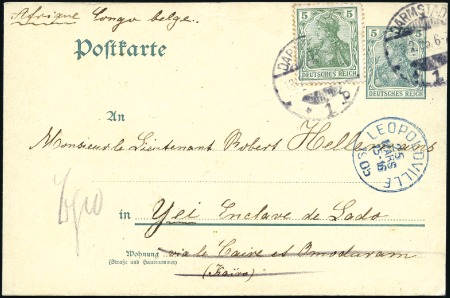 Afrique Congo belge.
Postkarte
5 5
DEUTSCHES REICH DEUTSCHES REICH
DARMSTADT
1
1
An
Monsieur le Lieutenant Robert Hellemans
LEOPOLDVILLE
25
MARS
5-16
in Yei Enclave de Lado
Wohnung via le Caire et Omoduram
(Straße und Hausnummer) (Kaïro)